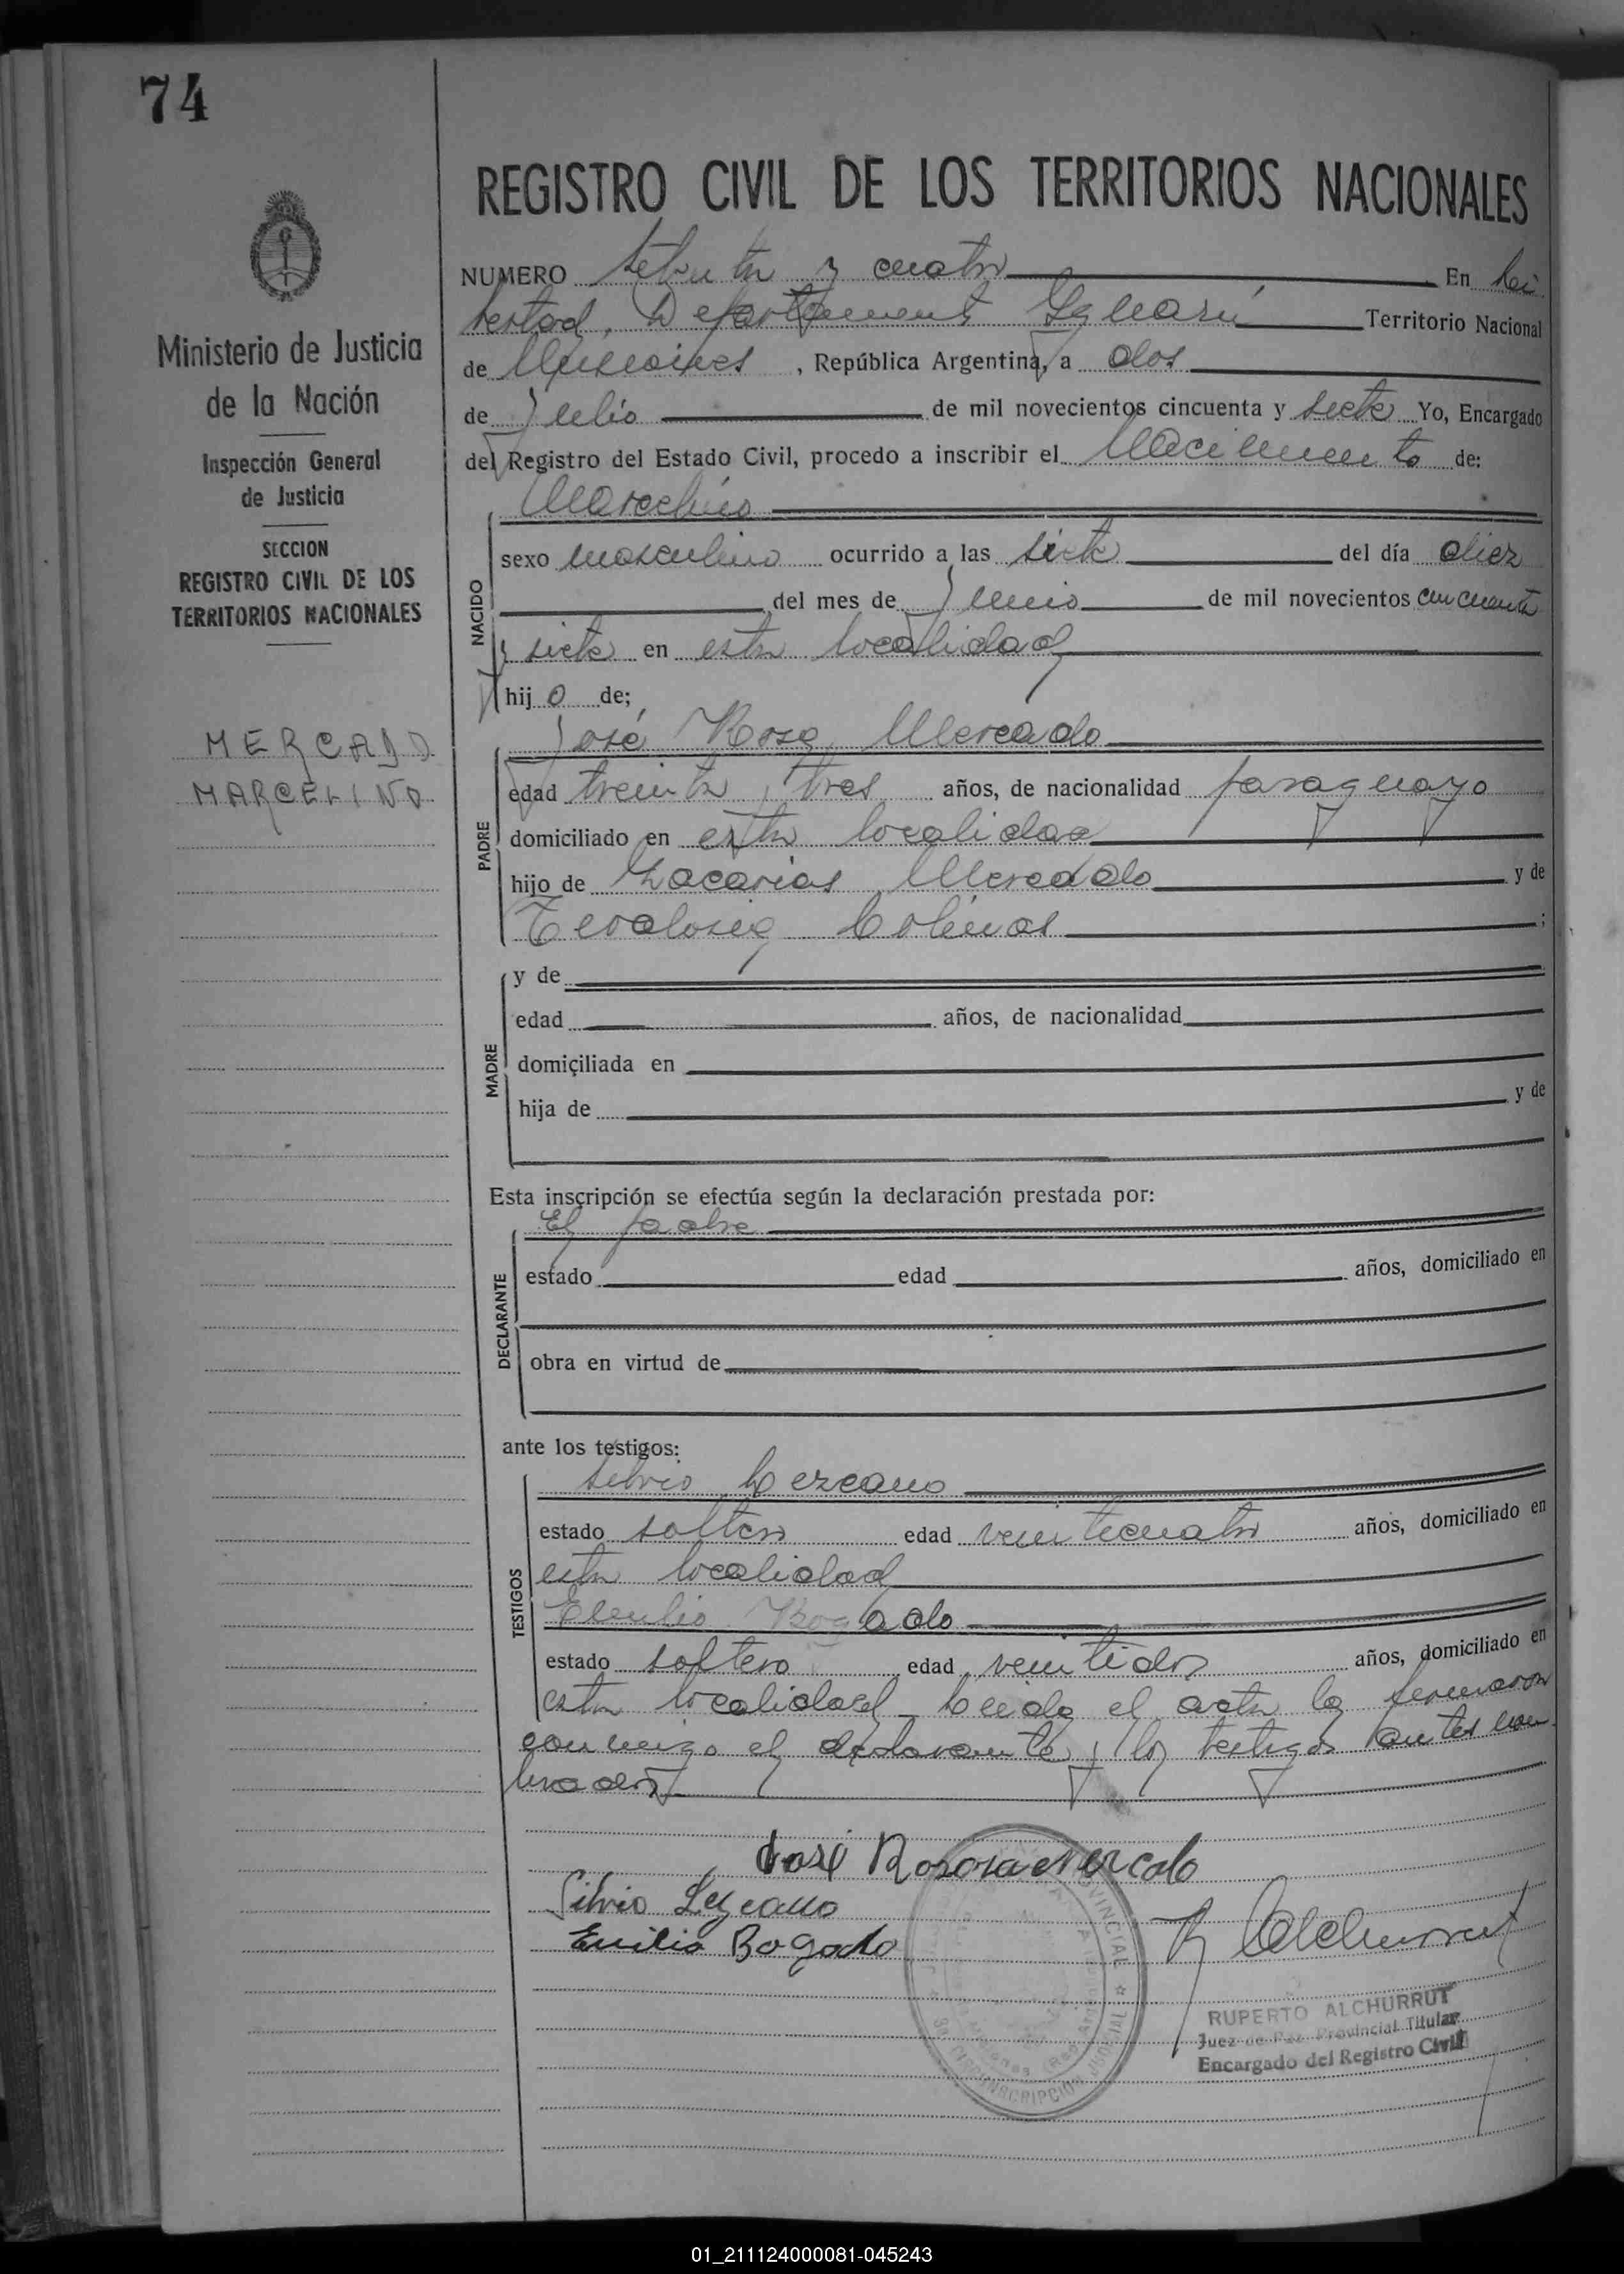 74
REGISTRO CIVIL DE LOS TERRITORIOS NACIONALES
Ministerio de Justicia
de la Nación
Inspección General
de Justicia
SECCION
REGISTRO CIVIL DE LOS
TERRITORIOS NACIONALES
MERCADO
MARCELINO
NUMERO setenta y cuatro En Li
bertad, Departamento Iguazú Territorio Nacional
de Misiones, República Argentina, a dos
de Julio de mil novecientos cincuenta y siete Yo, Encargado
del Registro del Estado Civil, procedo a inscribir el Nacimiento de:
NACIDO
Marcelino
sexo masculino ocurrido a las siete del día diez
del mes de Junio de mil novecientos cincuenta
y siete en esta localidad
hijo de;
PADRE
José Rosa Mercado
edad treinta y tres años, de nacionalidad paraguayo
domiciliado en esta localidad
hijo de Zacarias Mercado y de
Teodosia Colinas;
MADRE
y de
edad años, de nacionalidad
domiciliada en
hija de y de
Esta inscripción se efectúa según la declaración prestada por:
DECLARANTE
El padre
estado edad años, domiciliado en
obra en virtud de
ante los testigos:
TESTIGOS
Silvio Lezcano
estado soltero edad veinticuatro años, domiciliado en
esta localidad
Bogado
estado soltero edad veintidos años, domiciliado en
esta localidad Leida el acta la firmaron
conmigo el declarante y los testigos antes nom
brados
José Rosa Mercado
Silvio Lezcano
Emilio Bogado
R Alchurrut
RUPERTO ALCHURRUT
Juez de Paz Provincial Titular
Encargado del Registro Civil
PROVINCIAL
CIRCUNSCRIPCION JUDICIAL
01_211124000081-045243